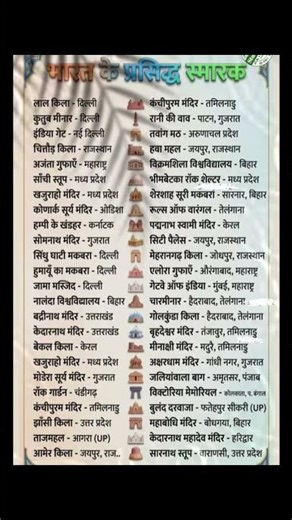 भारत के प्रसिद्ध स्मारक
लाल किला - दिल्ली
कुतुब मीनार - दिल्ली
इंडिया गेट - नई दिल्ली
चित्तौड़ किला - राजस्थान
अजंता गुफाएँ - महाराष्ट्र
साँची स्तूप - मध्य प्रदेश
खजुराहो मंदिर - मध्य प्रदेश
कोणार्क सूर्य मंदिर - ओडिशा
हम्पी के खंडहर - कर्नाटक
सोमनाथ मंदिर - गुजरात
सिंधु घाटी मकबरा - दिल्ली
हुमायूँ का मकबरा - दिल्ली
जामा मस्जिद - दिल्ली
नालंदा विश्वविद्यालय - बिहार
बद्रीनाथ मंदिर - उत्तराखंड
केदारनाथ मंदिर - उत्तराखंड
बेकल किला - केरल
खजुराहो मंदिर - मध्य प्रदेश
मोडेरा सूर्य मंदिर - गुजरात
रॉक गार्डन - चंडीगढ़
कंचीपुरम मंदिर - तमिलनाडु
झाँसी किला - उत्तर प्रदेश
ताजमहल - आगरा (UP)
आमेर किला - जयपुर, राज..
कंचीपुरम मंदिर - तमिलनाडु
रानी की वाव - पाटन, गुजरात
तवांग मठ - अरुणाचल प्रदेश
हवा महल - जयपुर, राजस्थान
विक्रमशिला विश्वविद्यालय - बिहार
भीमबेटका रॉक शेल्टर - मध्य प्रदेश
शेरशाह सूरी मकबरा - बिहार
रूल्स ऑफ वारंगल - तेलंगाना
पद्मनाभ स्वामी मंदिर - केरल
सिटी पैलेस - जयपुर, राजस्थान
मेहरानगढ़ किला - जोधपुर, राजस्थान
एलोरा गुफाएँ - औरंगाबाद, महाराष्ट्र
गेटवे ऑफ इंडिया - मुंबई, महाराष्ट्र
चारमीनार - हैदराबाद, तेलंगाना
गोलकुंडा किला - हैदराबाद, तेलंगाना
बृहदेश्वर मंदिर - तंजावुर, तमिलनाडु
मीनाक्षी मंदिर - मदुरै, तमिलनाडु
अक्षरधाम मंदिर - गांधी नगर, गुजरात
जलियांवाला बाग - अमृतसर, पंजाब
विक्टोरिया मेमोरियल - कोलकाता, प. बंगाल
बुलंद दरवाजा - फतेहपुर सीकरी (UP)
महाबोधि मंदिर - बोधगया, बिहार
केदारनाथ महादेव मंदिर - हरिद्वार
सारनाथ स्तूप - वाराणसी, उत्तर प्रदेश